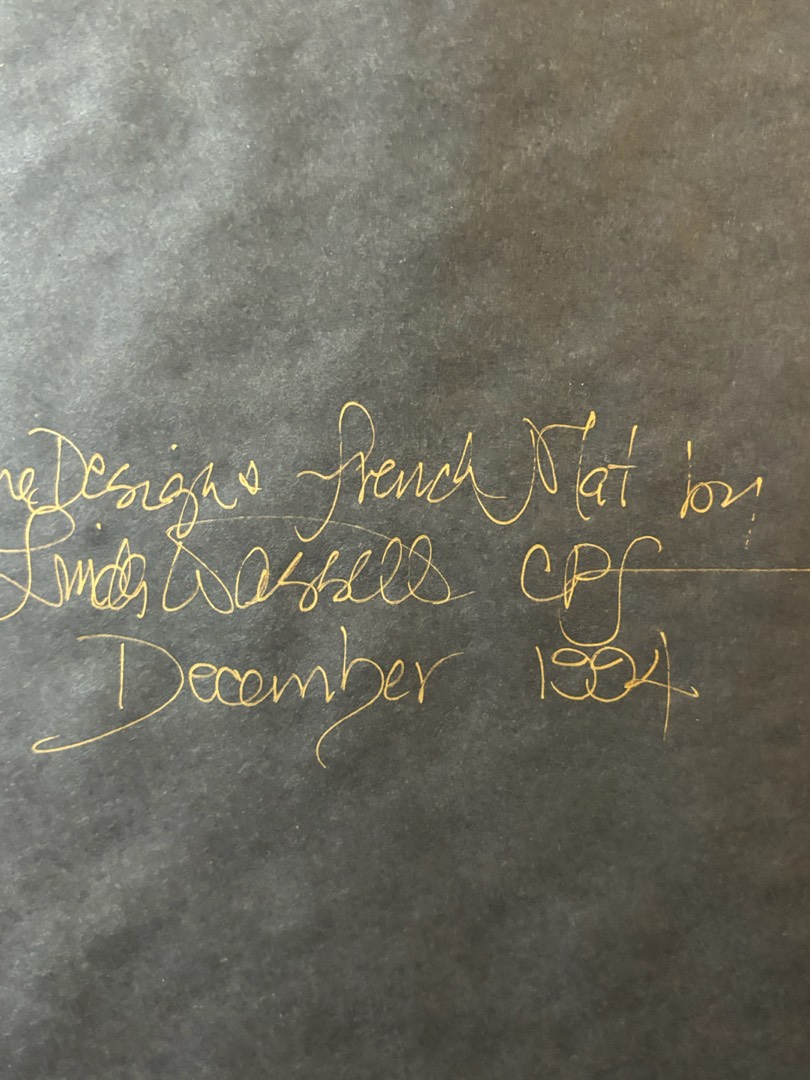 Design & French Mat by
Linda Wassell CPF
December 1994